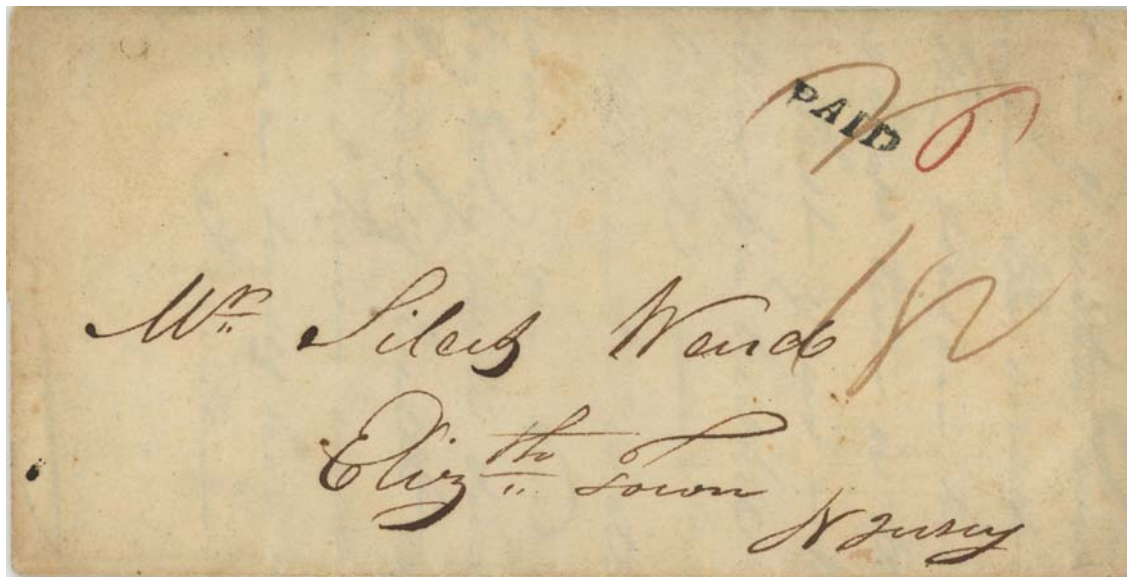 PAID 6
12
Mr Silas Ward
Elizth Town
N Jersey